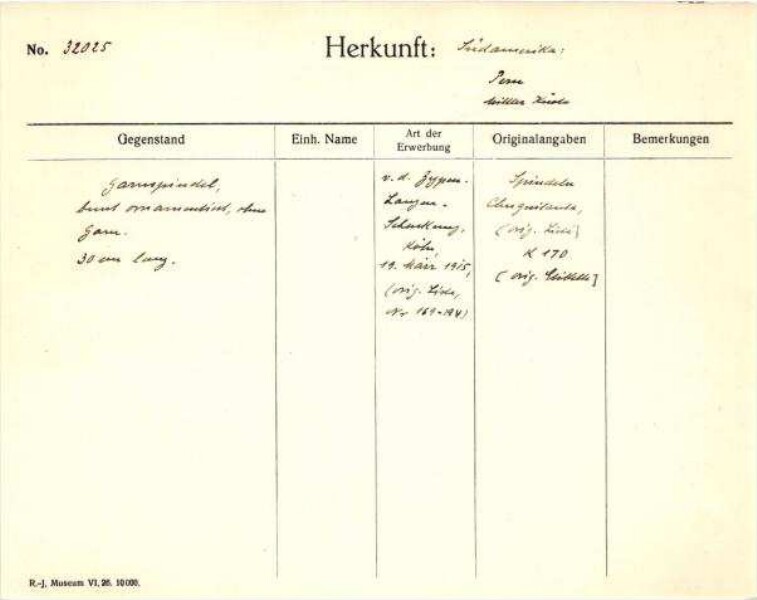 No. 32025
Herkunft: Südamerika:
Peru
Mittlere Küste
Gegenstand
Einh. Name
Art der
Erwerbung
Originalangaben
Bemerkungen
Garnspindel,
bunt ornamentiert, ohne
Garn.
30 cm lang.
v. d. Zypen-
Langen-
Schenkung,
Köln,
19. März 1915,
(orig. Liste,
Nr 169-194)
Spindeln
(orig. Liste]
K 170
[orig. Etikette]
R.-J. Museum VI, 26. 10000.